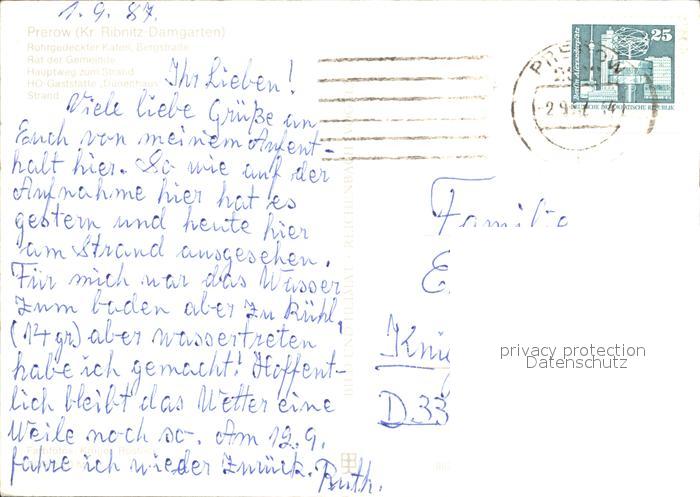 1.9.87.
Prerow (Kr. Ribnitz-Damgarten)
Rohrgedeckter Katen, Bergstraße
Rat der Gemeinde
Hauptweg zum Strand
HO-Gaststätte „Dünenhaus“
Strand
Ihr Lieben!
Viele liebe Grüße an
Euch von meinem Aufent-
halt hier. So wie auf der
Aufnahme hier hat es
gestern und heute hier
am Strand ausgesehen.
Für mich war das Wasser
zum baden aber zu kühl,
(14 gr.) aber wassertreten
habe ich gemacht! Hoffent-
lich bleibt das Wetter eine
Weile noch so. Am 12.9.
fahre ich wieder zurück.
Ruth.
25
Berlin, Alexanderplatz
DEUTSCHE DEMOKRATISCHE REPUBLIK
PREROW
Familie
E
Kni
D 33
privacy protection
Datenschutz